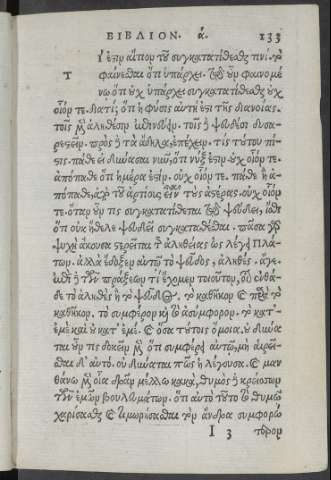 ΒΙΒΛΙΟΝ. ά. 133
Τί ἐστιν αἴτιον τοῦ συγκατατίθεσθαί τινι. τὸ
φαίνεσθαι ὅτι ὑπάρχει. τῷ οὖν φαινομέ
νῳ ὅτι οὐχ ὑπάρχει συγκατατίθεσθαι οὐχ
οἷόν τε. διατί; ὅτι ἡ φύσις αὐτὴ ἐστὶ τῆς διανοίας.
τοῖς μὲν ἀληθέσιν ἐπινεύειν. τοῖς δὲ ψευδέσι δυσα-
ρεστεῖν. πρὸς δὲ τὰ ἄδηλα, ἐπέχειν. τίς τούτου πί-
στις. πάθε εἰ δύνασαι νῦν, ὅτι νύξ ἐστιν. οὐχ οἷόν τε.
ἀπόπαθε ὅτι ἡμέρα ἐστίν. οὐχ οἷόν τε. πάθε ἢ ἀ-
πόπαθε, ἀπὸ τοῦ ἀρτίους εἶναι τοὺς ἀστέρας. οὐχ οἷόν
τε. ὅταν οὖν τις συγκατατίθεται τῷ ψεύδει, ἴσθι
ὅτι οὐκ ἤθελε ψεύδει συγκαταθέσθαι. πᾶσα γὰρ
ψυχὴ ἄκουσα στερεῖται τῆς ἀληθείας ὡς λέγει Πλά
των. ἀλλὰ ἔδοξεν αὐτῷ τὸ ψεῦδος, ἀληθές. ἄγε.
ἐπὶ δὲ τῶν πράξεων τί ἔχομεν τοιοῦτον, οἷον ἐνθά-
δε τὸ ἀληθὲς ἢ τὸ ψεῦδος. τὸ καθῆκον καὶ παρὰ τὸ
καθῆκον. τὸ συμφέρον καὶ τὸ ἀσύμφορον. τὸ κατ'
ἐμὲ καὶ οὐ κατ' ἐμέ. καὶ ὅσα τούτοις ὅμοια. οὐ δύνα
ται οὖν τις δοκεῖν μὲν ὅτι συμφέρει αὐτῷ, μὴ αἱρεῖ-
σθαι δ' αὐτό. οὐ δύναται πῶς ἡ λέγουσα. καὶ μαν
θάνω μὲν οἷα δρᾶν μέλλω κακά, θυμὸς δὲ κρείσσων
τῶν ἐμῶν βουλευμάτων. ὅτι αὐτὸ τοῦτο τῷ θυμῷ
χαρίσασθαι καὶ τιμωρήσασθαι τὸν ἄνδρα συμφορώ
I 3 τερον